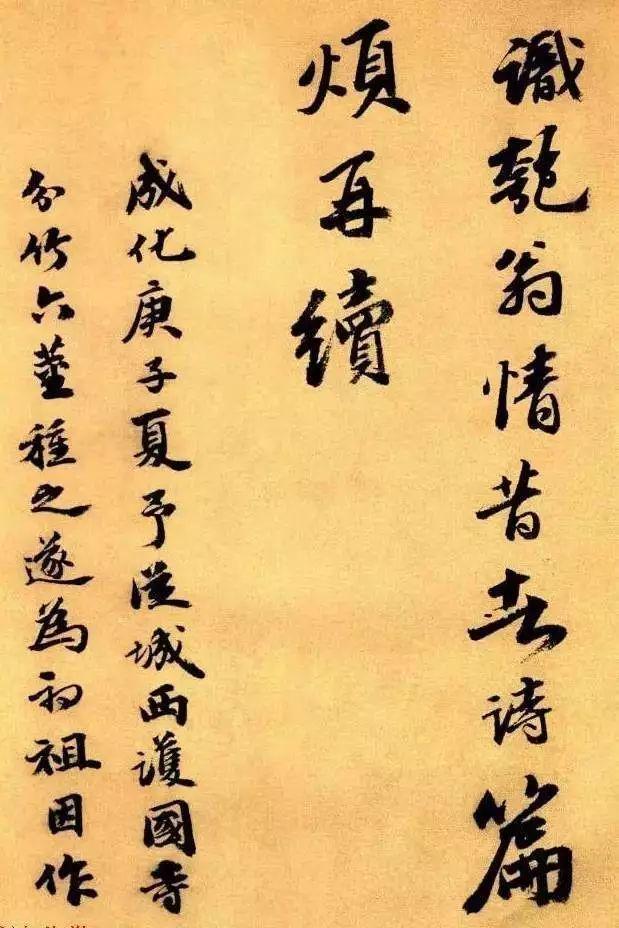 識匏翁情昔者詩篇
煩再續
成化庚子夏予從城西護國寺
分竹六莖種之遂為初祖因作